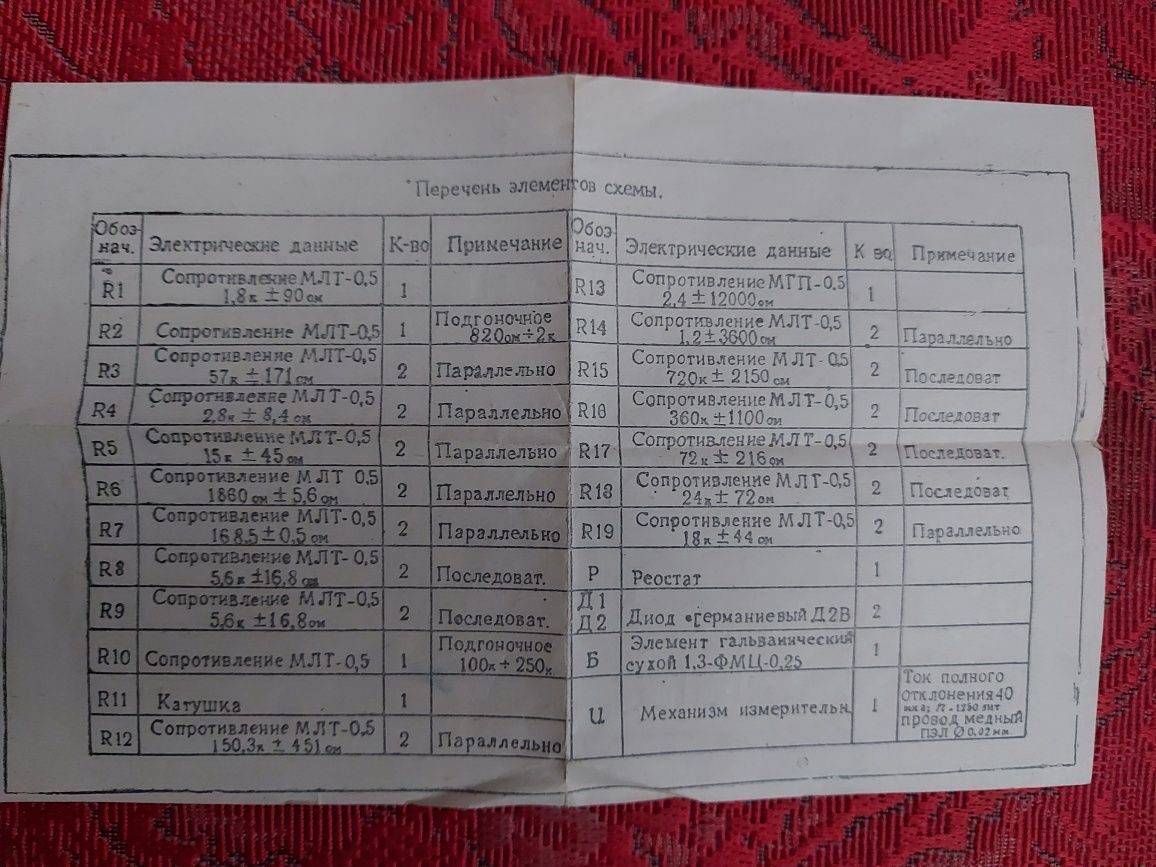 Перечень элементов схемы.
Обоз-нач. Электрические данные К-во Примечание
R1 Сопротивление МЛТ-0,5 1,8к ±90ом 1
R2 Сопротивление МЛТ-0,5 1 Подгоночное 820ом÷2к
R3 Сопротивление МЛТ-0,5 57к ±171ом 2 Параллельно
R4 Сопротивление МЛТ-0,5 2,8к ± 8,4ом 2 Параллельно
R5 Сопротивление МЛТ-0,5 15к ± 45ом 2 Параллельно
R6 Сопротивление МЛТ 0.5 1860ом ± 5,6ом 2 Параллельно
R7 Сопротивление МЛТ-0,5 168,5 ± 0,5ом 2 Параллельно
R8 Сопротивление МЛТ-0,5 5,6к ±16,8ом 2 Последоват.
R9 Сопротивление МЛТ-0,5 5,6к ±16,8ом 2 Последоват.
R10 Сопротивление МЛТ-0,5 1 Подгоночное 100к÷250к
R11 Катушка 1
R12 Сопротивление МЛТ-0,5 150,3к ± 451ом 2 Параллельно
Обоз-нач. Электрические данные К во Примечание
R13 Сопротивление МГП-0.5 2,4±12000ом 1
R14 Сопротивление МЛТ-0,5 1,2±3600ом 2 Параллельно
R15 Сопротивление МЛТ-0,5 720к±2150ом 2 Последоват
R16 Сопротивление МЛТ-0,5 360к±1100ом 2 Последоват
R17 Сопротивление МЛТ-0,5 72к ± 216ом 2 Последоват.
R18 Сопротивление МЛТ-0,5 24к± 72ом 2 Последоват
R19 Сопротивление МЛТ-0,5 18к ±44ом 2 Параллельно
Р Реостат 1
Д1 Д2 Диод германиевый Д2В 2
Б Элемент гальванический сухой 1,3-ФМЦ-0,25 1
И Механизм измерительн. 1 Ток полного отклонения 40 мка; провод медный ПЭЛ Ø 0,02 мм.